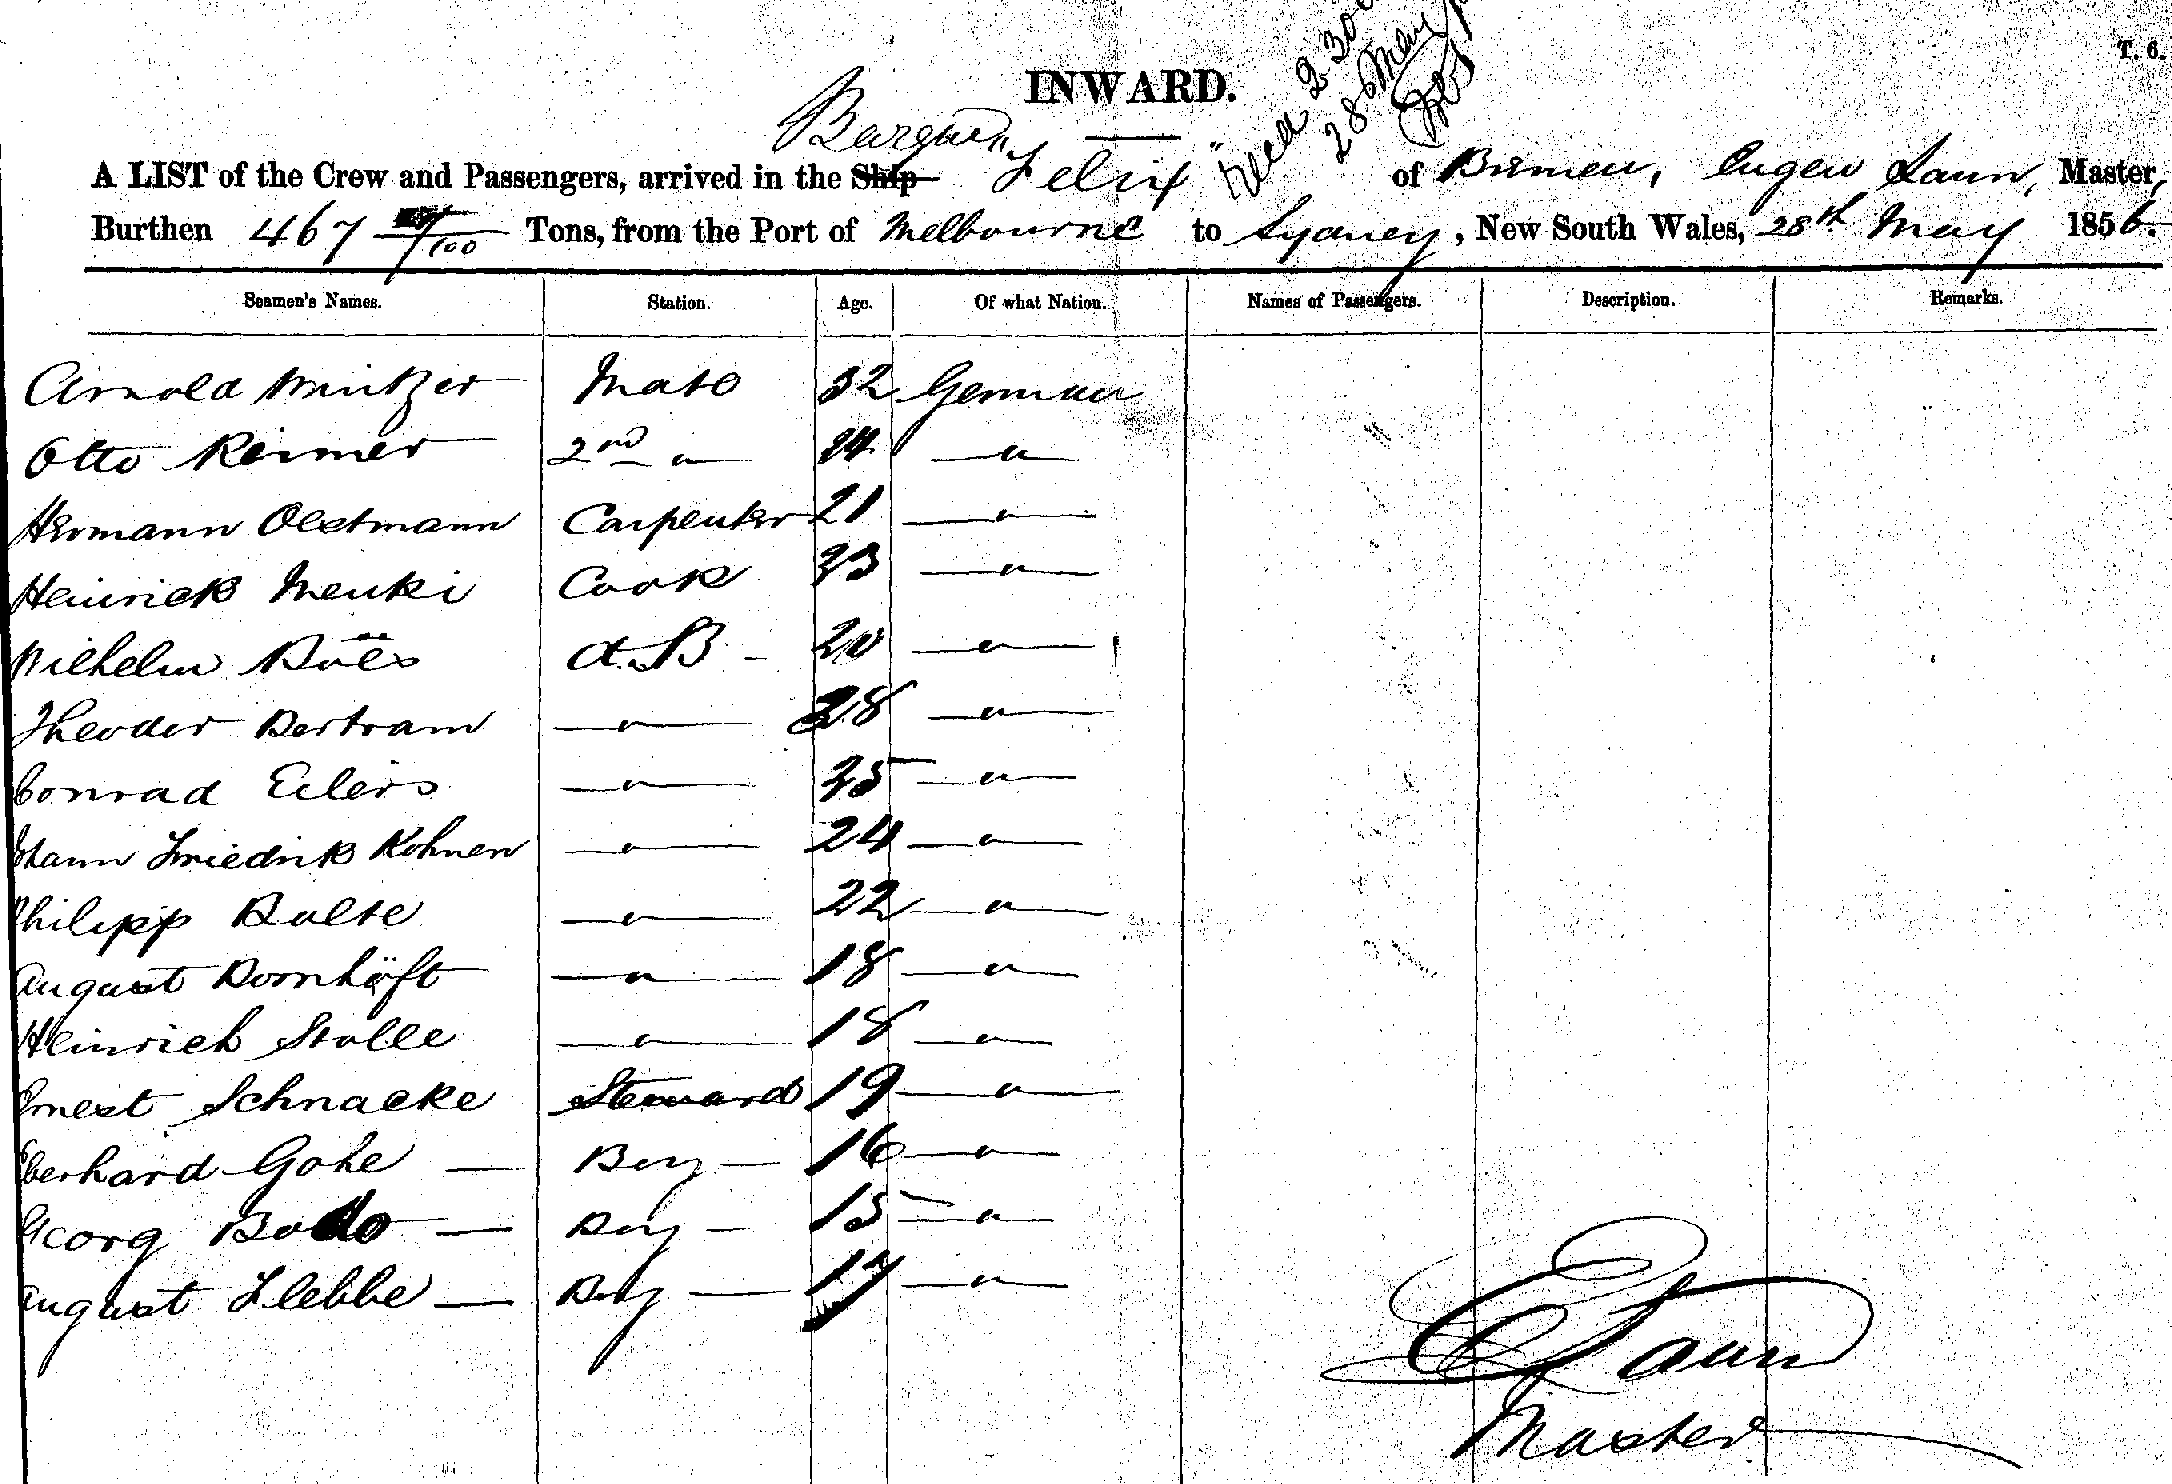 T. 6.
INWARD.
Recd 2 30
28 May
Barque
A LIST of the Crew and Passengers, arrived in the Ship "Felix" of Bremen, Eugen Laun, Master,
Burthen 467 /100 Tons, from the Port of Melbourne to Sydney, New South Wales, 28th May 1856.
Seamen's Names. Station. Age. Of what Nation. Names of Passengers. Description. Remarks.
Arnold Mintzer Mate 32 German
Otto Reimer 2nd " 24 "
Hermann Oestmann Carpenter 21 "
Heinrich Menke Cook 23 "
Wilhelm A.B 20 "
Theodor Bertram " 28 "
Conrad Eilers " 25 "
Johann Friedrik Kohnen " 24 "
Philipp Bulte " 22 "
August Dornhöft " 18 "
Heinrich Stolle " 18 "
Ernest Schnacke Steward 19 "
Eberhard Gohe — Boy — 16 "
Georg Bodo — Boy — 15 "
August Flebbe — Boy — 17 "
E Laun
Master